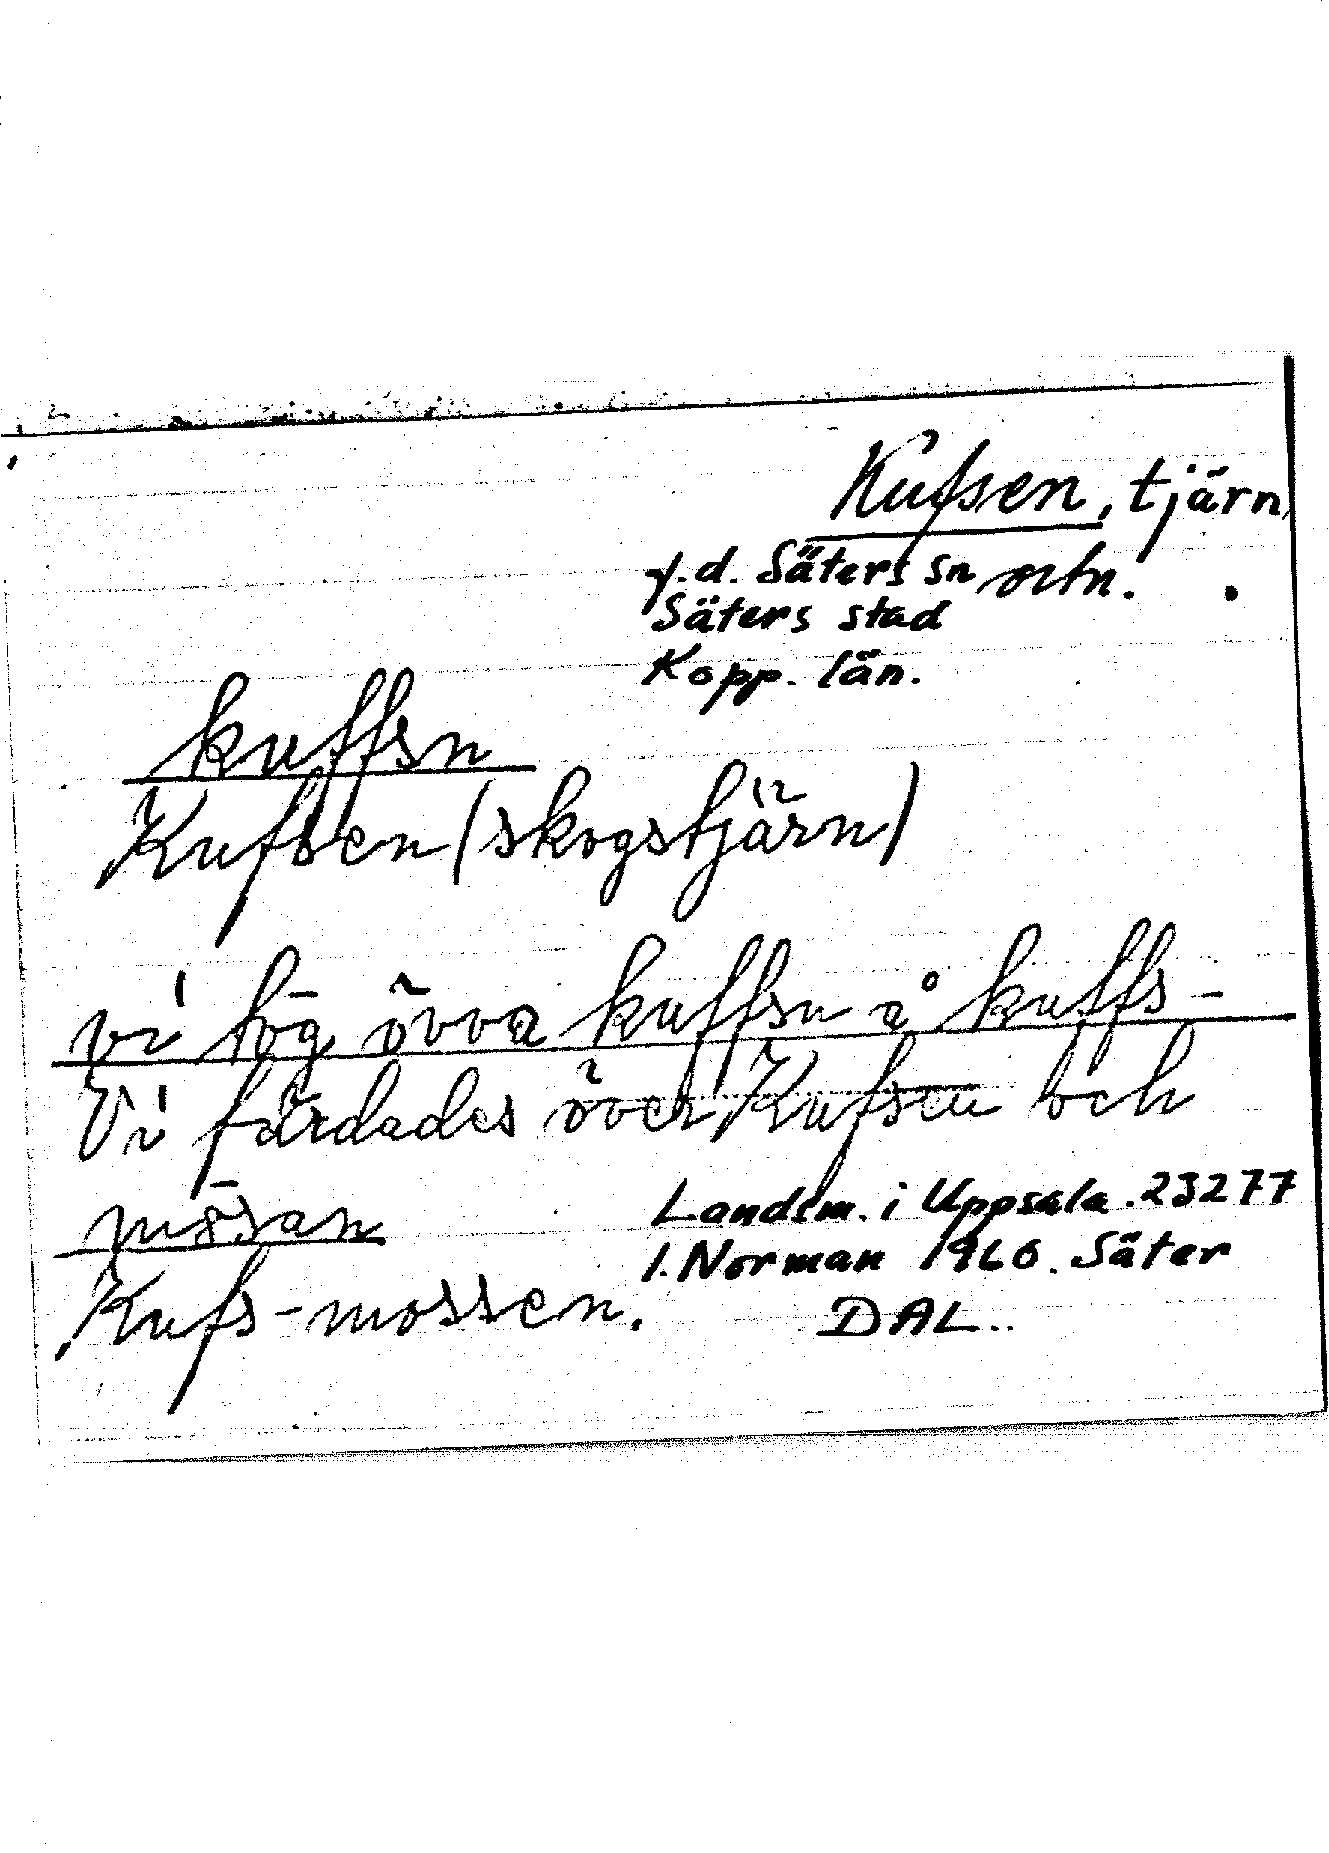 Kufsen, tjärn
f.d. Säters sn ortn.
Säters stad
Kopp. län.
kuffsn
Kufsen (skogstjärn)
vi tōg övva kuffsn å kuffs-
Vi färdades över Kufsen och
mōsan
Kufs-mossen.
Landsm. i Uppsala. 23277
I. Norman 1960. Säter
DAL.